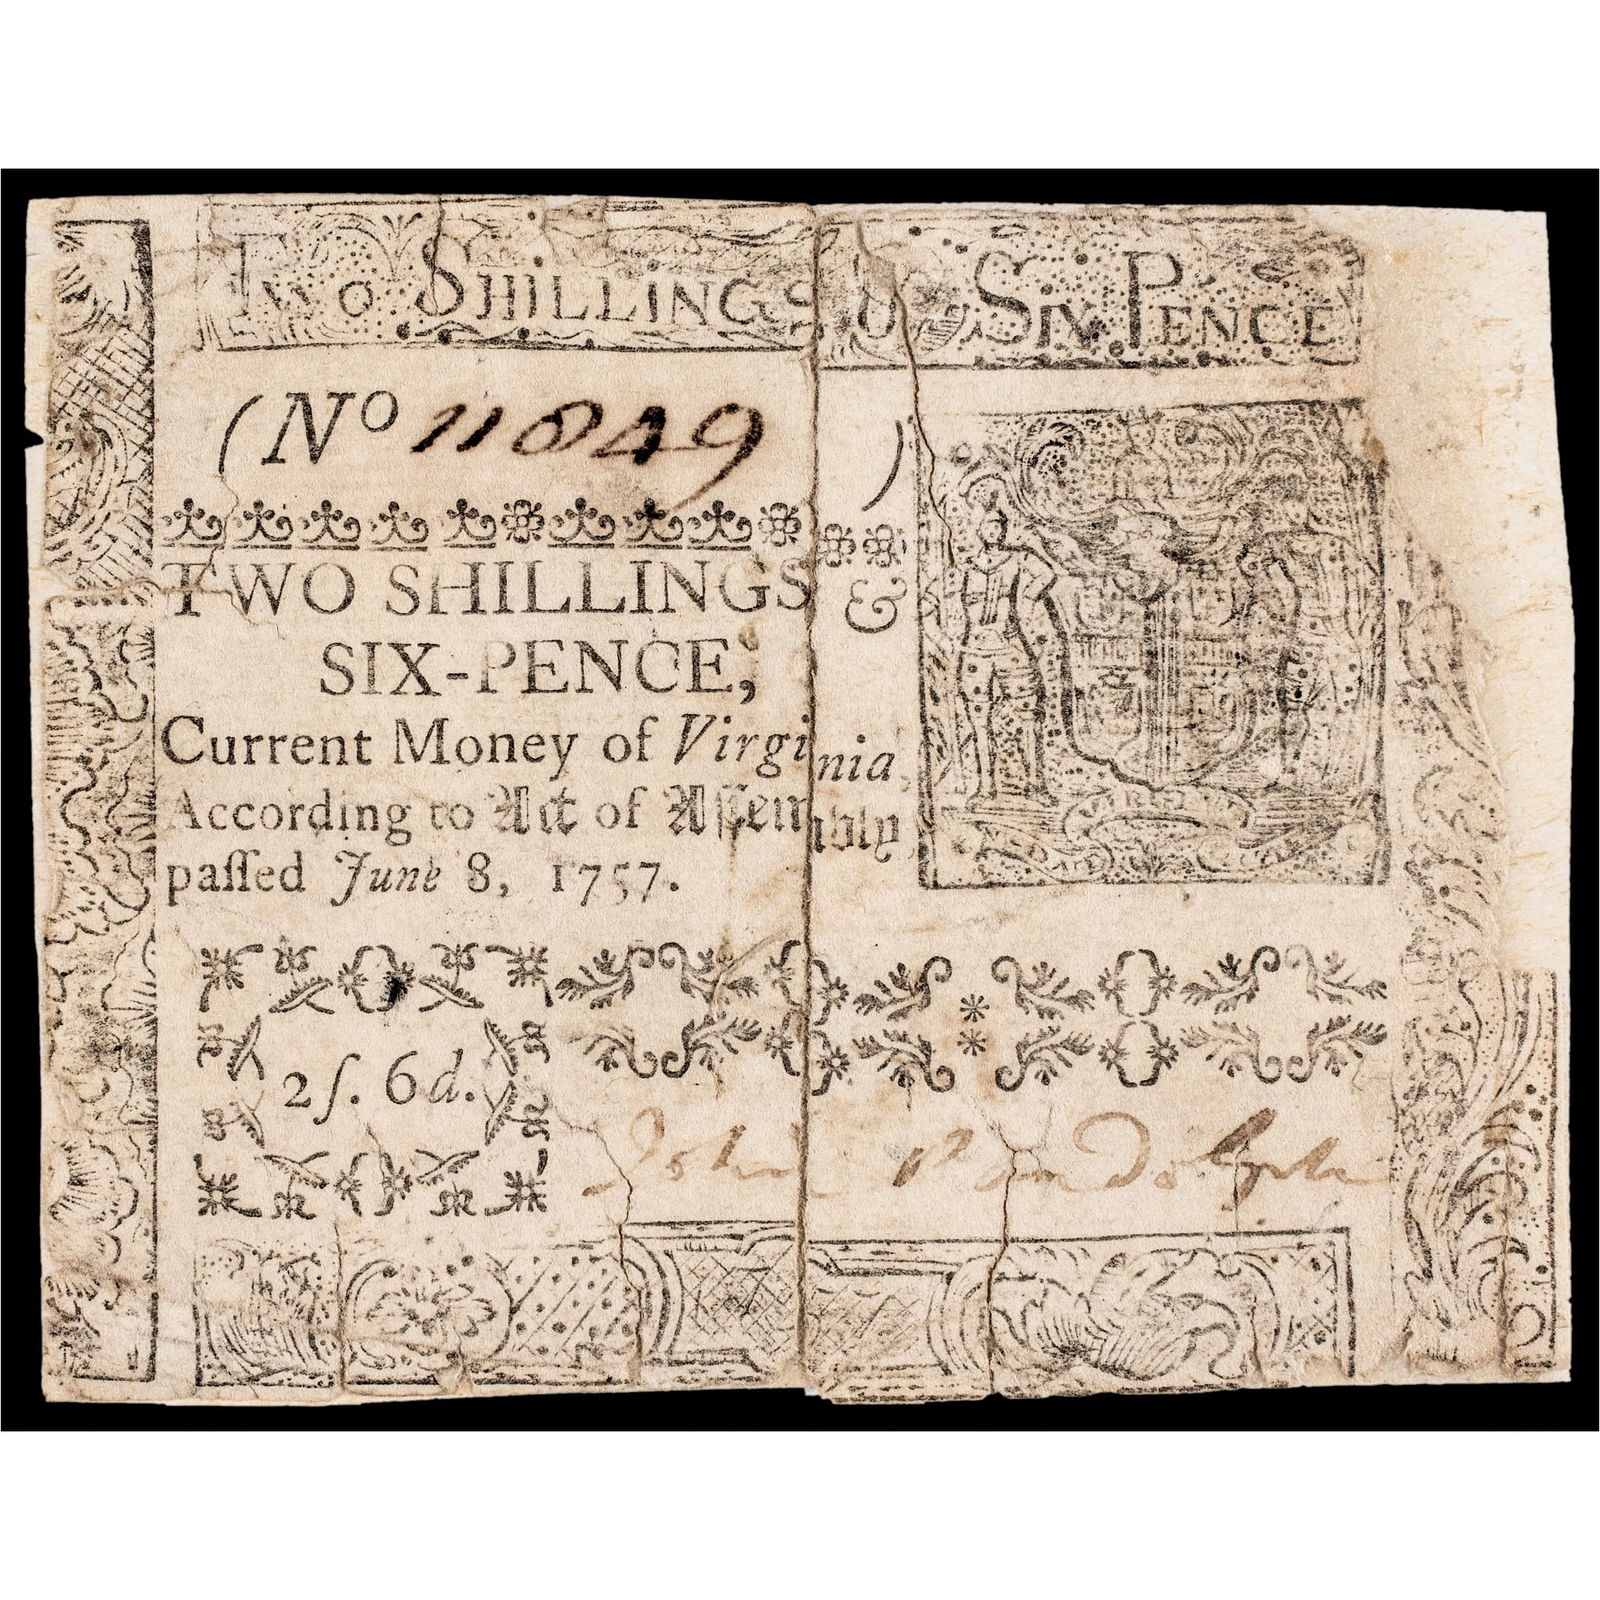 Two Shillings & Six Pence
(No 11849 )
TWO SHILLINGS &
SIX-PENCE,
Current Money of Virginia,
According to Act of Aſſembly,
paſſed June 8, 1757.
VIRGINIA
2ſ. 6d.
John Randolph